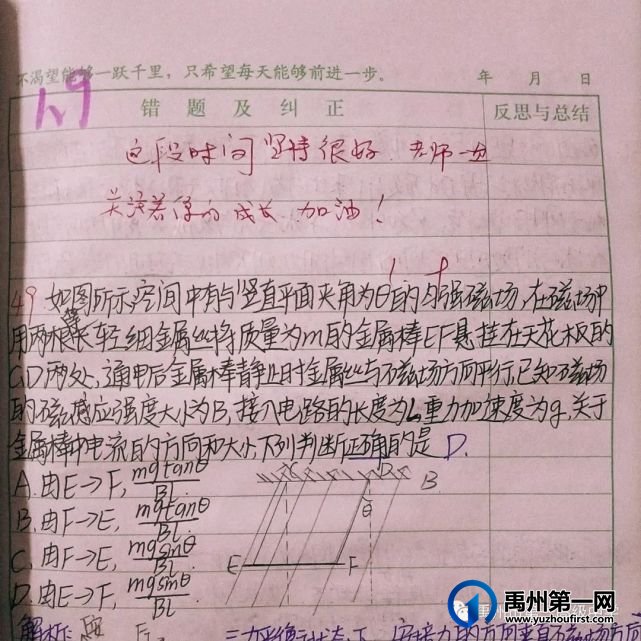 不渴望能够一跃千里，只希望每天能够前进一步。 年 月 日
1、9 错题及纠正 反思与总结
这段时间坚持很好.老师一直
关注着你的成长.加油！
49.如图所示,空间中有与竖直平面夹角为θ的匀强磁场,在磁场中
用两根等长轻细金属丝将质量为m的金属棒EF悬挂在天花板的
C,D两处,通电后金属棒静止时金属丝与磁场方向平行.已知磁场
的磁感应强度大小为B,接入电路的长度为l,重力加速度为g,关于
金属棒中电流的方向和大小,下列判断正确的是 D.
A.由E→F, mgtanθ/Bl
B.由F→E, mgtanθ/Bl
C.由F→E, mgsinθ/Bl
D.由E→F, mgsinθ/Bl
C D B
θ
E F
解析:
禹州第一网
www.yuzhoufirst.com